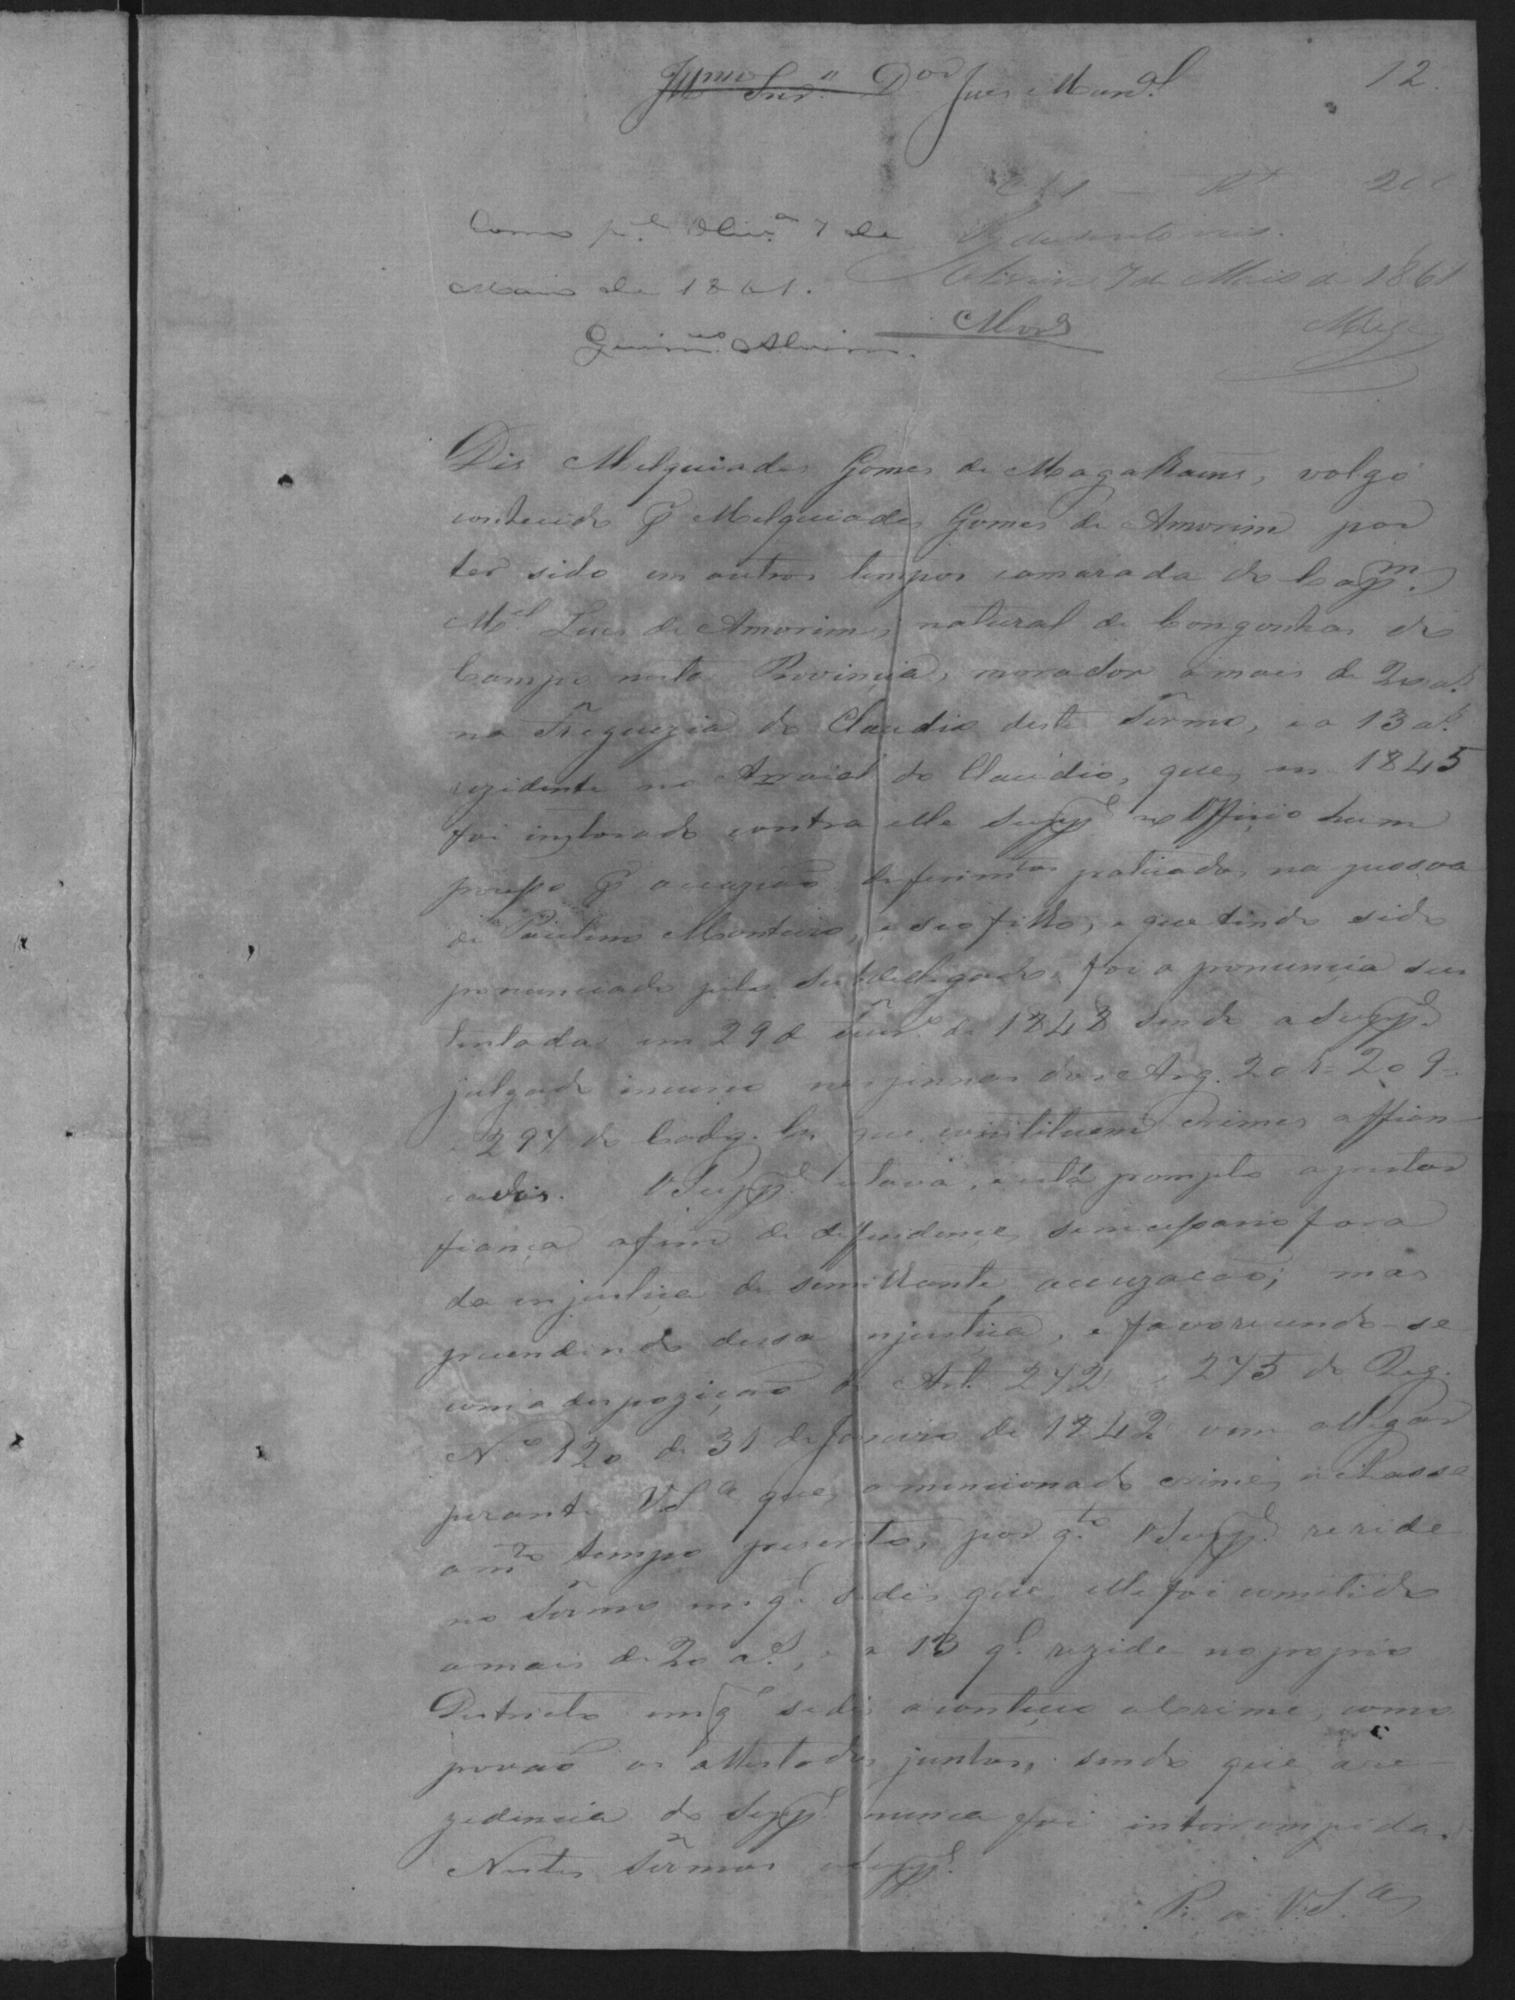 Illmo Snr. Dor Juis Munal
12
N.º 1 Rs 200
Como pe. Olivrª 7 de
Maio de 1861.
Guimes Alvim.
Pg dusentos reis.
Oliveira 7 de Maio de 1861
Dis Melquiades Gomes de Magalhaens, volgo
conhecido pr Melquiades Gomes de Amorim por
ter sido em outros tempos camarada do Capm.
Mel Luis de Amorim, natural de Congonhas do
Campo nesta Provincia, morador a mais de 20 as.
na Freguezia do Claudio deste Termo, e a 13 as.
rezidente no Arraial do Claudio, que, em 1845
foi instorado contra elle Suppe ex Officio hum
procêsso pr acuzação de ferimtos praticados na pessoa
de Paulino Monteiro, e seo filho, e que tendo sido
pronunciado pelo Subdelegado, foi a pronuncia sus
tentada em 29 de de 1848 sendo o Suppe.
julgado incurso nas pennas dos Arg. 201= 209=
e 297 do Codg. Cr. que constituem crimes affian
caveis. O Suppe. estava, e está prompto a prestar
fiança afim de deffender-se, se necessario fora
da injustiça de similhante acuzação; mas
precendindo dessa injustiça, e favorecendo-se
com a despozição do Art. 272 e 275 do Reg.
Nº 120 de 31 de Janeiro de 1842 vem allegar
perante VSª que, o mencionado crime, se axhasse
a mto tempo prescrito, por qto O Suppe. rezide
no Termo em qe. se dis que elle foi comitido
a mais de 20 as., e a 13 qe. rezide no proprio
Destricto em qe se dis aconteceo o Crime, como
provão os attestados juntos, sendo que a re
zidencia do Suppe. nunca foi interrompida.
Nestes Termos o Suppe.
P. a V.S.ª